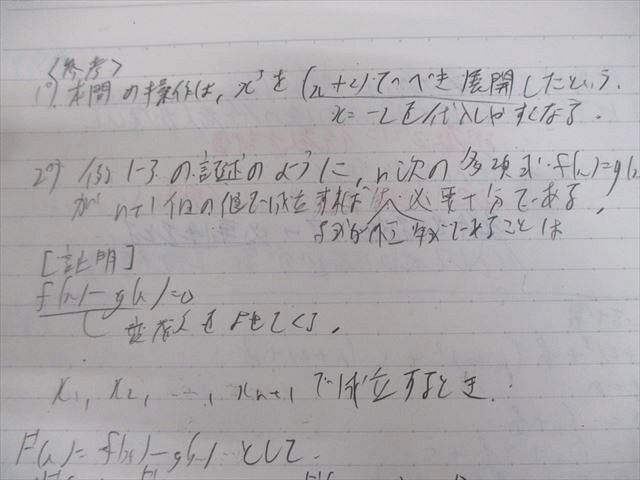 <参考>
1º/ 本問の操作は、x³を(x+2)でべき展開したという.
x=-2を代入しやすくなる.
2º/ 例1-3の証述のように、n次の多項式f(x)=g(x)
がn+1個の値で成立すれば 必要十分である,
であることは
[証明]
f(x)-g(x)=0
をよせてくる,
x₁, x₂, …, xn+1で成立するとき.
F(x)=f(x)-g(x)として.